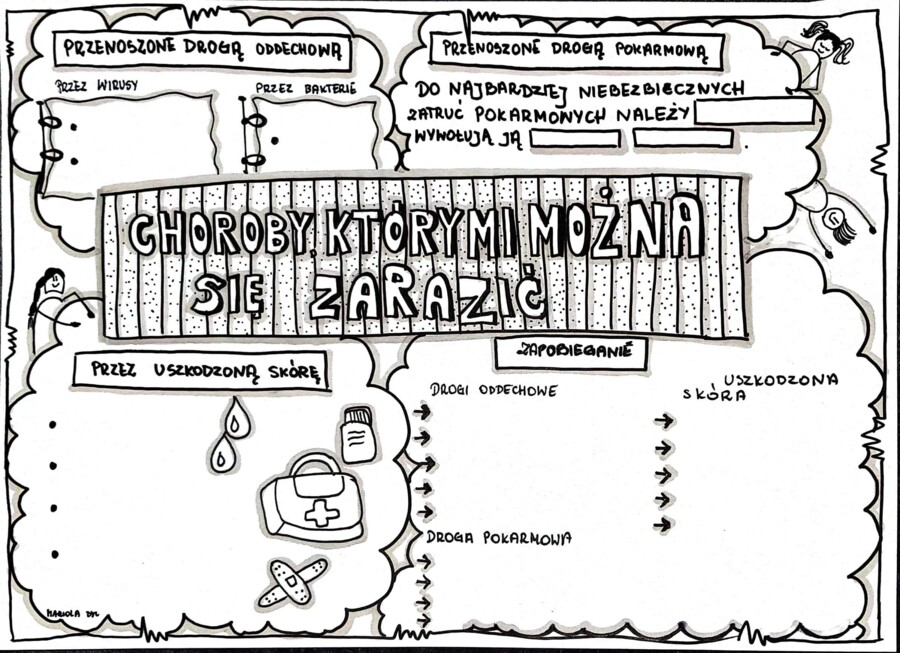 PRZENOSZONE DROGĄ ODDECHOWĄ
PRZEZ WIRUSY
PRZEZ BAKTERIE
PRZENOSZONE DROGĄ POKARMOWĄ
DO NAJBARDZIEJ NIEBEZBIECZNYCH
ZATRUĆ POKARMOWYCH NALEŻY
WYWOŁUJĄ JĄ
CHOROBY, KTÓRYMI MOŻNA
SIĘ ZARAZIĆ
PRZEZ USZKODZONĄ SKÓRĘ
ZAPOBIEGANIE
DROGI ODDECHOWE
USZKODZONA
SKÓRA
DROGA POKARMOWA
MARIOLA